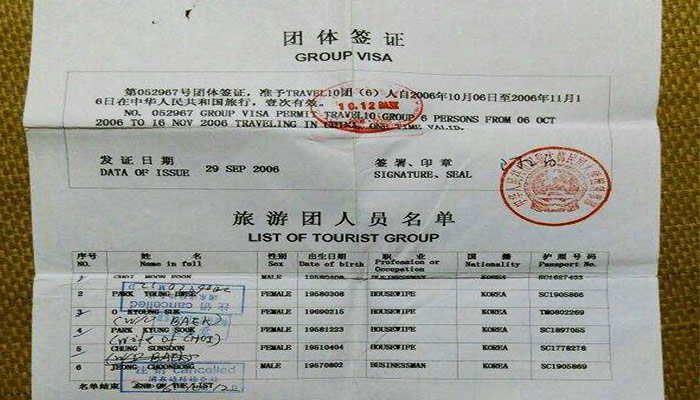 团体签证
GROUP VISA
第052967号团体签证，准予TRAVEL10团（6）人自2006年10月06日至2006年11月1
6日在中华人民共和国旅行，壹次有效。
10.12
NO. 052967 GROUP VISA PERMIT TRAVEL10 GROUP 6 PERSONS FROM 06 OCT
2006 TO 16 NOV 2006 TRAVELING IN CHINA, ONE TIME VALID.
发证日期 签署、印章
DATA OF ISSUE 29 SEP 2006 SIGNATURE, SEAL
旅游团人员名单
LIST OF TOURIST GROUP
序号 姓名 性别 出生日期 职业 国籍 护照号码
NO. Name in full Sex Date of birth Profession or Occupation Nationality Passport No.
1 CHOI MOON MALE BUSINESSMAN KOREA
2 PARK YOUNG FEMALE 19580308 HOUSEWIFE KOREA SC1905866
3 O KYOUNG SUK FEMALE 19690215 HOUSEWIFE KOREA TM0802269
(W/O BAEK)
4 PARK KYUNG SOOK FEMALE 19581223 HOUSEWIFE KOREA SC1897055
(wife of CHOI)
5 CHUNG SUNSOON FEMALE 19510404 HOUSEWIFE KOREA SC1778278
(W/O BAEK)
6 JEONG CHOONBONG MALE 19570802 BUSINESSMAN KOREA SC1905869
注销 cancelled
注销 cancelled
名单结束 END OF THE LIST